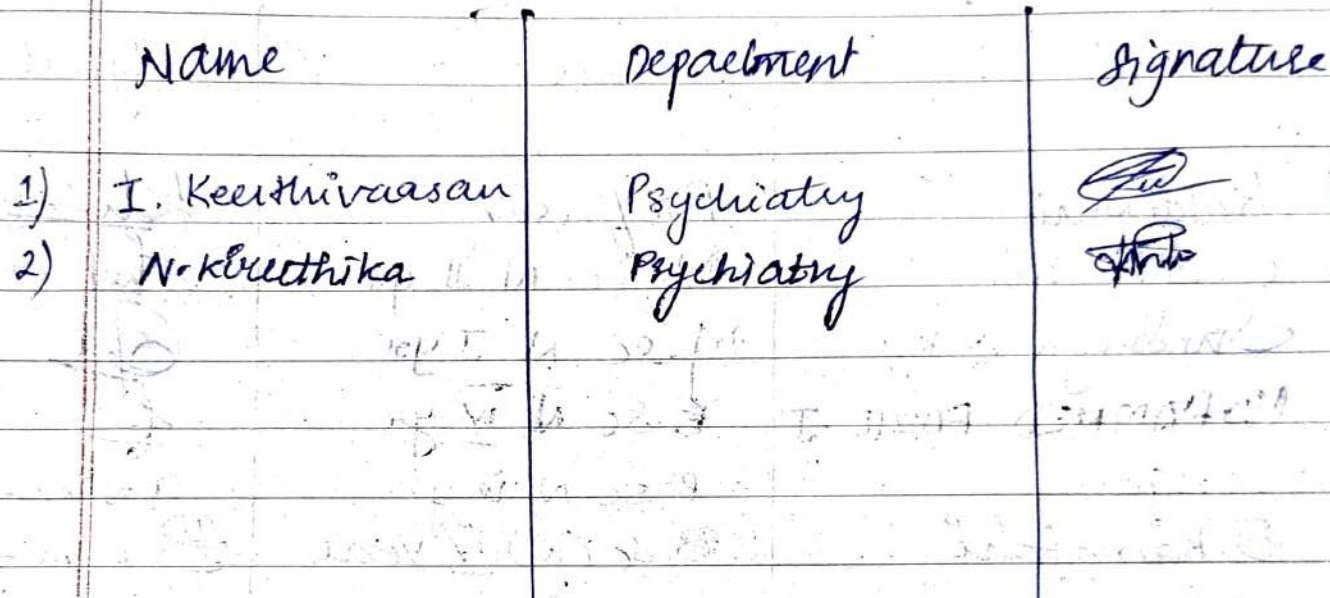 Name Department Signature
1) I. Keerthivaasan Psychiatry
2) N. Kireethika Psychiatry